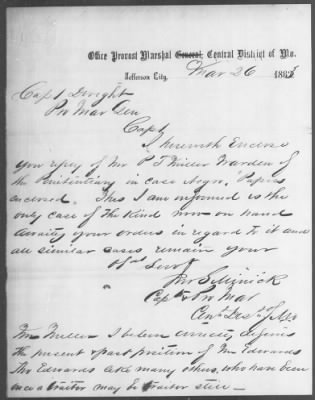 Office Provost Marshal General, Central District of Mo.
Jefferson City, Mar 26 1865
Capt Dwight
Pro Mar Gen
Capt
I herewith Enclose
you reply of Mr P T Miller Warden of
the Penitentiary in case Negro. Papers
enclosed. This I am informed is the
only case of the Kind now on hand
Awaiting your orders in regard to it and
all similar cases remain your
Obt Servt
Capt Pro Mar
Cent Dist Mo
Mr Miller I believe correctly defines
the present & past position of Mr Edwards
Mr Edwards like many others who have been
once a traitor may be traitor still —